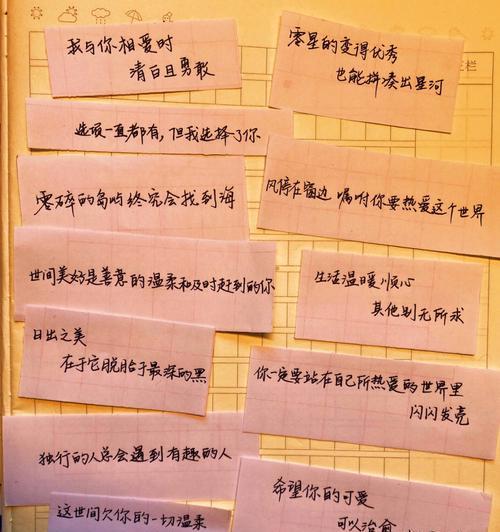 我与你相爱时
清白且勇敢
零星的变得优秀
也能拼凑出星河
选项一直都有,但我选择了你
零碎的岛屿终究会找到海
风停在窗边 嘱咐你要热爱这个世界
世间美好是善意的温柔和及时赶到的你
生活温暖顺心
其他别无所求
日出之美
在于它脱胎于最深的黑
你一定要站在自己所热爱的世界里
闪闪发亮
独行的人总会遇到有趣的人
希望你的可爱
可以治愈
这世间欠你的一切温柔
栏